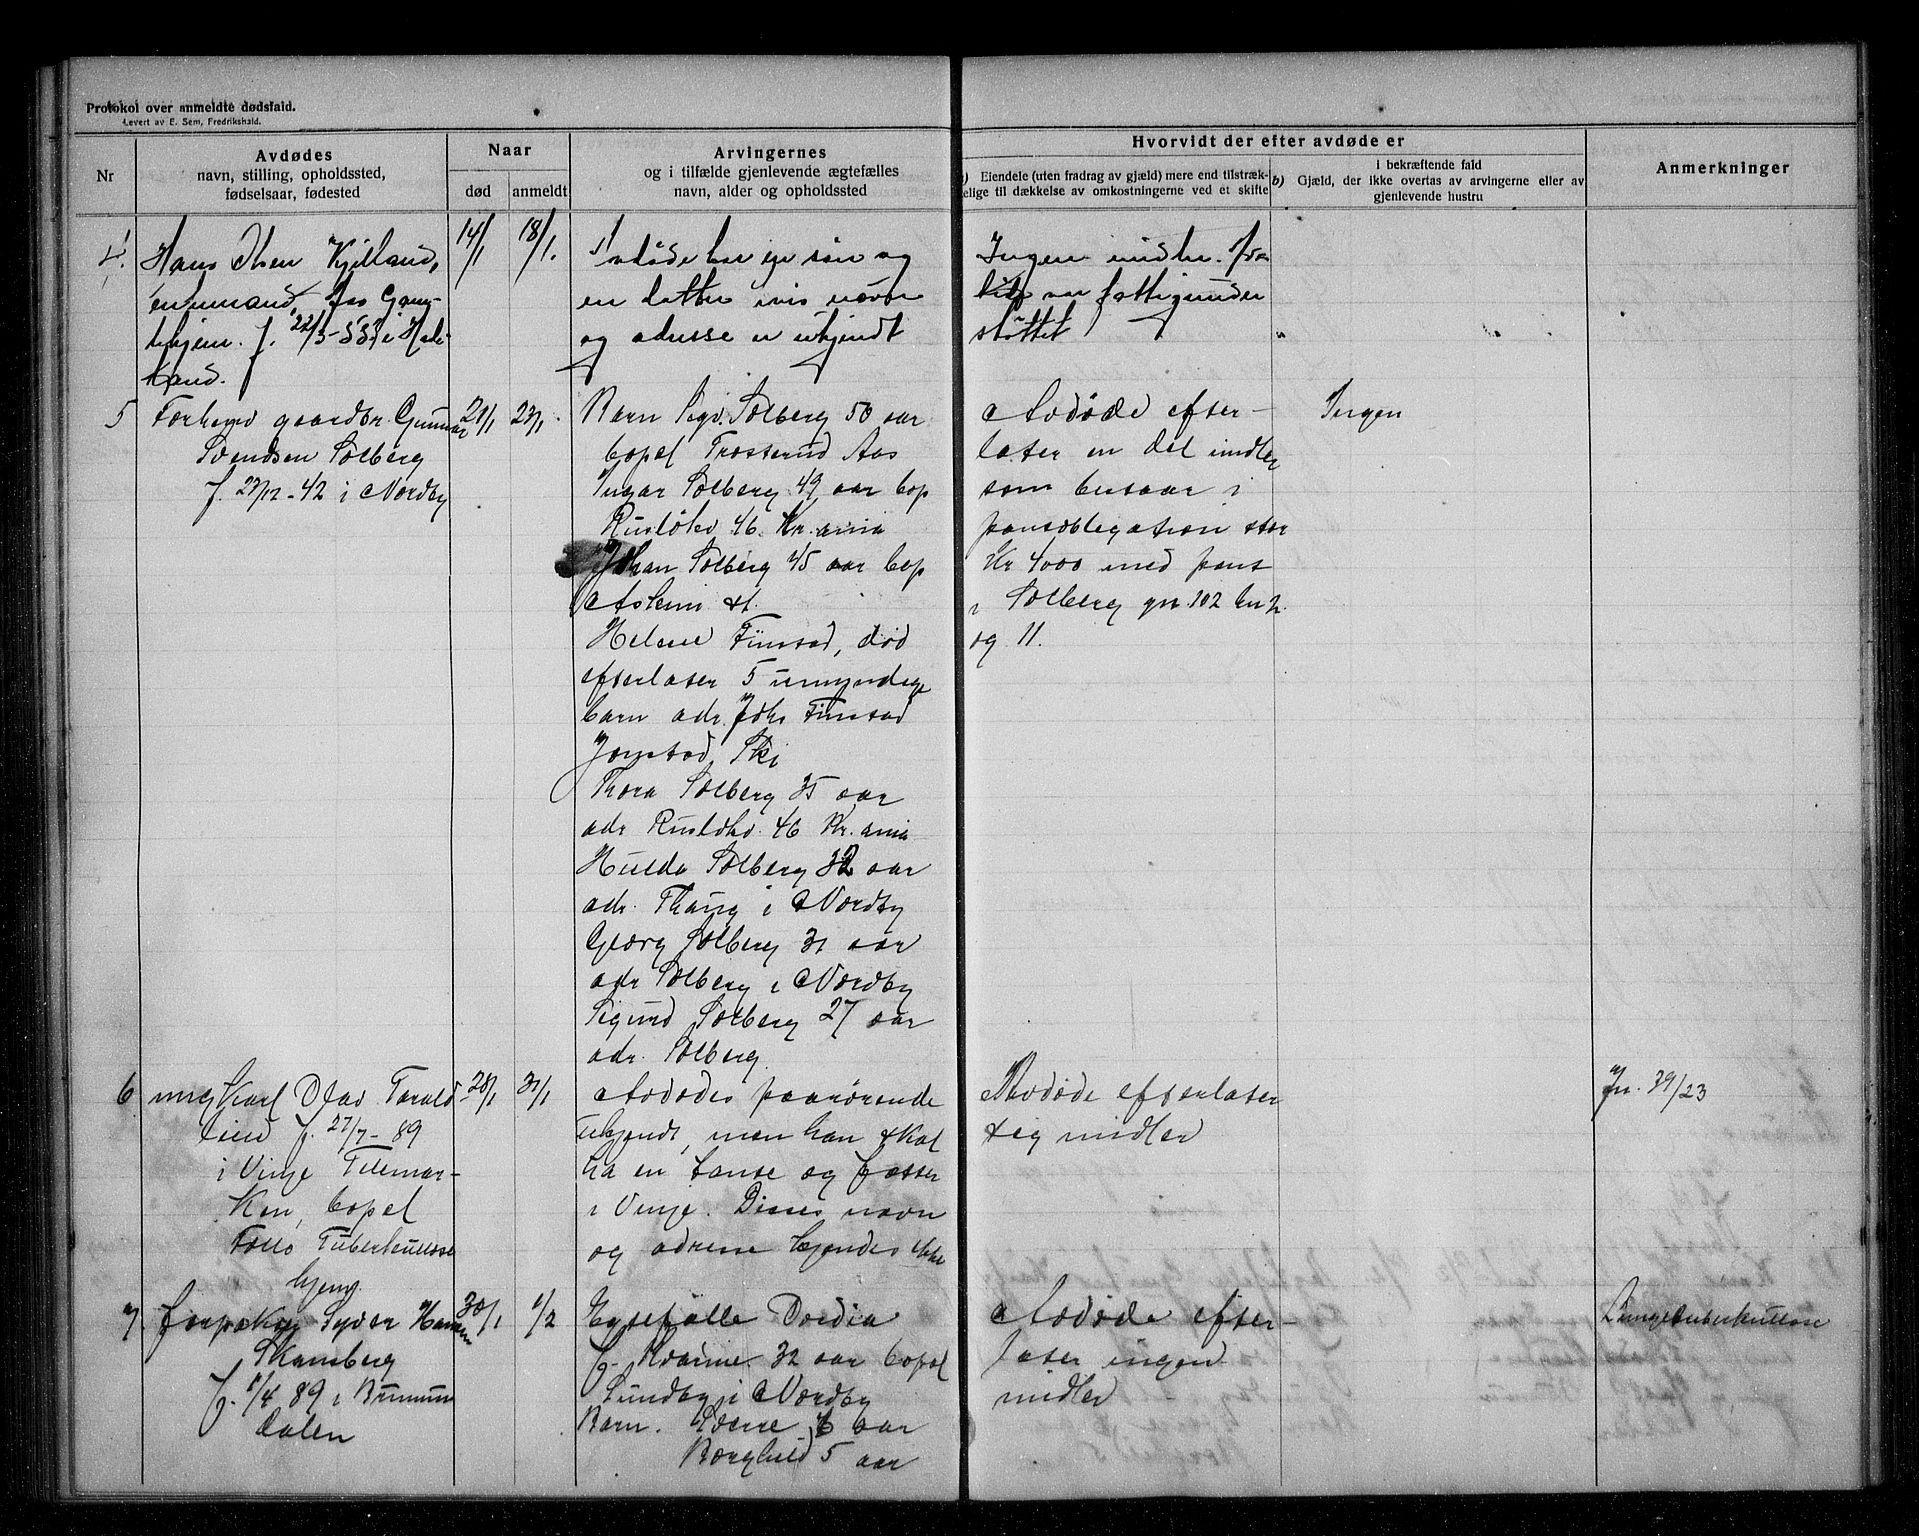 Protokol over anmeldte dødsfald.
Levert av E. Sem, Fredrikshald.
Nr
Avdødes
navn, stilling, opholdssted,
fødselsaar, fødested
Naar
død
anmeldt
Arvingernes
og i tilfælde gjenlevende ægtefælles
navn, alder og opholdssted
Hvorvidt der efter avdøde er
Eiendele (uten fradrag av gjæld) mere end tilstræk-
elige til dækkelse av omkostningerne ved et skifte
i bekræftende fald
b) Gjæld, der ikke overtas av arvingerne eller av
gjenlevende hustru
Anmerkninger
4.
Hans Olsen Kjilland,
enkemand, Aas Gam-
lehjem. f. 22/3-53 i
land.
14/1
18/1.
Avdøde har en søn og
en datter hvis navne
og adresse er ukjendt
Ingen midler.
var fattigunder
støttet
"
5
Forhenv gaardbr. Gunnar
Svendsen Solberg
f. 23/12-42 i Nordby
21/1
23/1
Barn Sigv. Solberg 50 aar
bopæl Trosterud Aas
Ingar Solberg 49 aar bop
Rusløkv 46. Kr.ania
Johan Solberg 45 aar bop
Askim st.
Helene Finstad, død
efterlater 5 umyndige
barn adr. Johs Finstad
Ski
Thora Solberg 35 aar
adr Rusløkv. 46 Kr.ania
Hulda Solberg 32 aar
adr. Thaug i Nordby
Georg Solberg 31 aar
adr Solberg i Nordby
Sigurd Solberg 27 aar
adr. Solberg.
Avdøde efter-
later en del midler
som bestaar i
pantobligation stor
Kr 4000 med pant
i Solberg gn 102 bn 2
og 11.
Ingen
6
Karl Olav Tarald
lien f. 27/7-89
i Vinje Telemar-
ken, bopæl
Follo Tuberkulose
hjem.
28/1
31/1
Avdødes paarørende
ukjendt, men han skal
ha en tante og faster
i Vinje. Disses navn
og adresse kjendes ikke
Avdøde efterlater
sig midler
Jn. 39/23
7.
Syver Hansen
Skansberg
f. 1/4 89 i Brumun
dalen
30/1
1/2
Egtefælle Dordia
f. Kværne 32 aar bopæl
Sundby i Nordby
Barn. Sverre 6 aar
Borghild 5 aar
Avdøde efter-
later ingen
midler
Lungetuberkulose